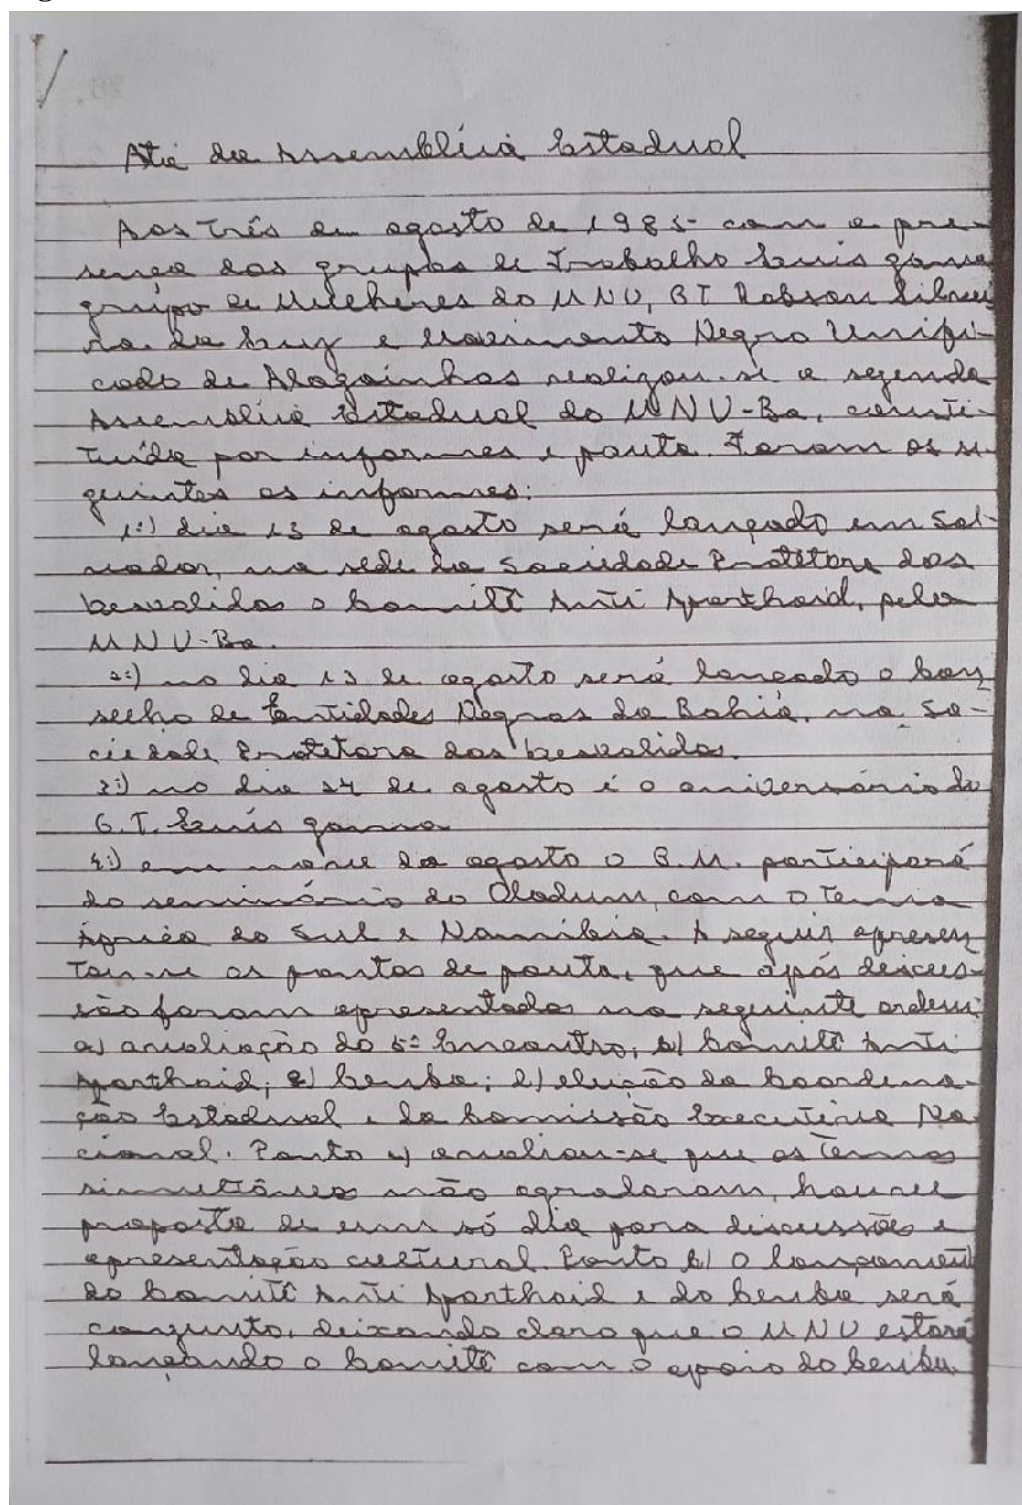 Ata da Assembléia Estadual
Aos três de agosto de 1985 com a pre-
sença dos grupos de Trabalho Luis gama
grupo de Mulheres do MNU, GT Robson Silvei
ra da Luz e Movimento Negro Unifi-
cado de Alagoinhas realizou-se a segunda
Assembléia Estadual do MNU-Ba, consti-
tuída por informes e pauta. Foram os se-
guintes os informes:
1º) dia 13 de agosto será lançado em Sal-
vador, na sede da Sociedade Protetora dos
Desvalidos o Comitê Anti Aparthaid, pelo
MNU-Ba.
2º) no dia 13 de agosto será lançado o Con
selho de Entidades Negras da Bahia, na So-
ciedade Protetora dos Desvalidos.
3º) no dia 24 de agosto é o aniversário do
G.T. Luís gama
4º) em nove de agosto o G.M. participará
do seminário do Olodum, com o tema
África do Sul e Namíbia. A seguir apresen
tou-se os pontos de pauta, que após discus-
são foram apresentados na seguinte ordem:
a) avaliação do 5º Encontro; b) Comitê Anti
Aparthaid; c) Cenba; d) eleição da Coordena-
ção Estadual e da Comissão Executiva Na
cional. Ponto a) avaliou-se que os temas
simultâneos não agradaram, houve
proposta de um só dia para discussões e
apresentação cultural. Ponto b) O lançamento
do Comitê Anti Aparthaid e do Cenba será
conjunto, deixando claro que o MNU estará
lançando o Comitê com o apoio do Cenba.